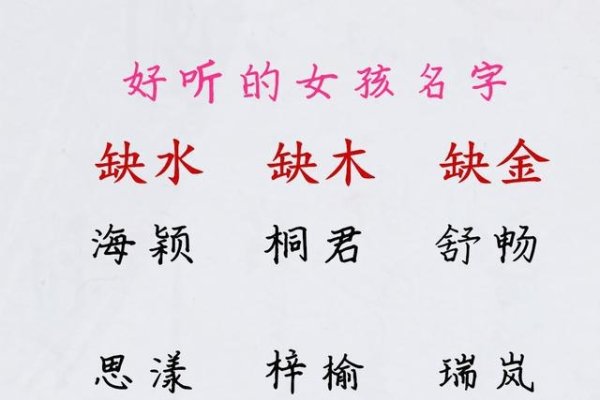 好听的女孩名字
缺水 缺木 缺金
海颖 桐君 舒畅
思漾 梓榆 瑞岚